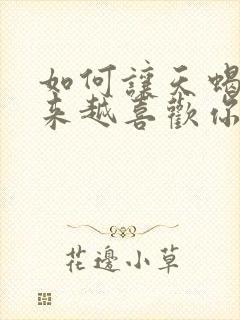 如何讓天蝎
來越喜歡你
花邊小草